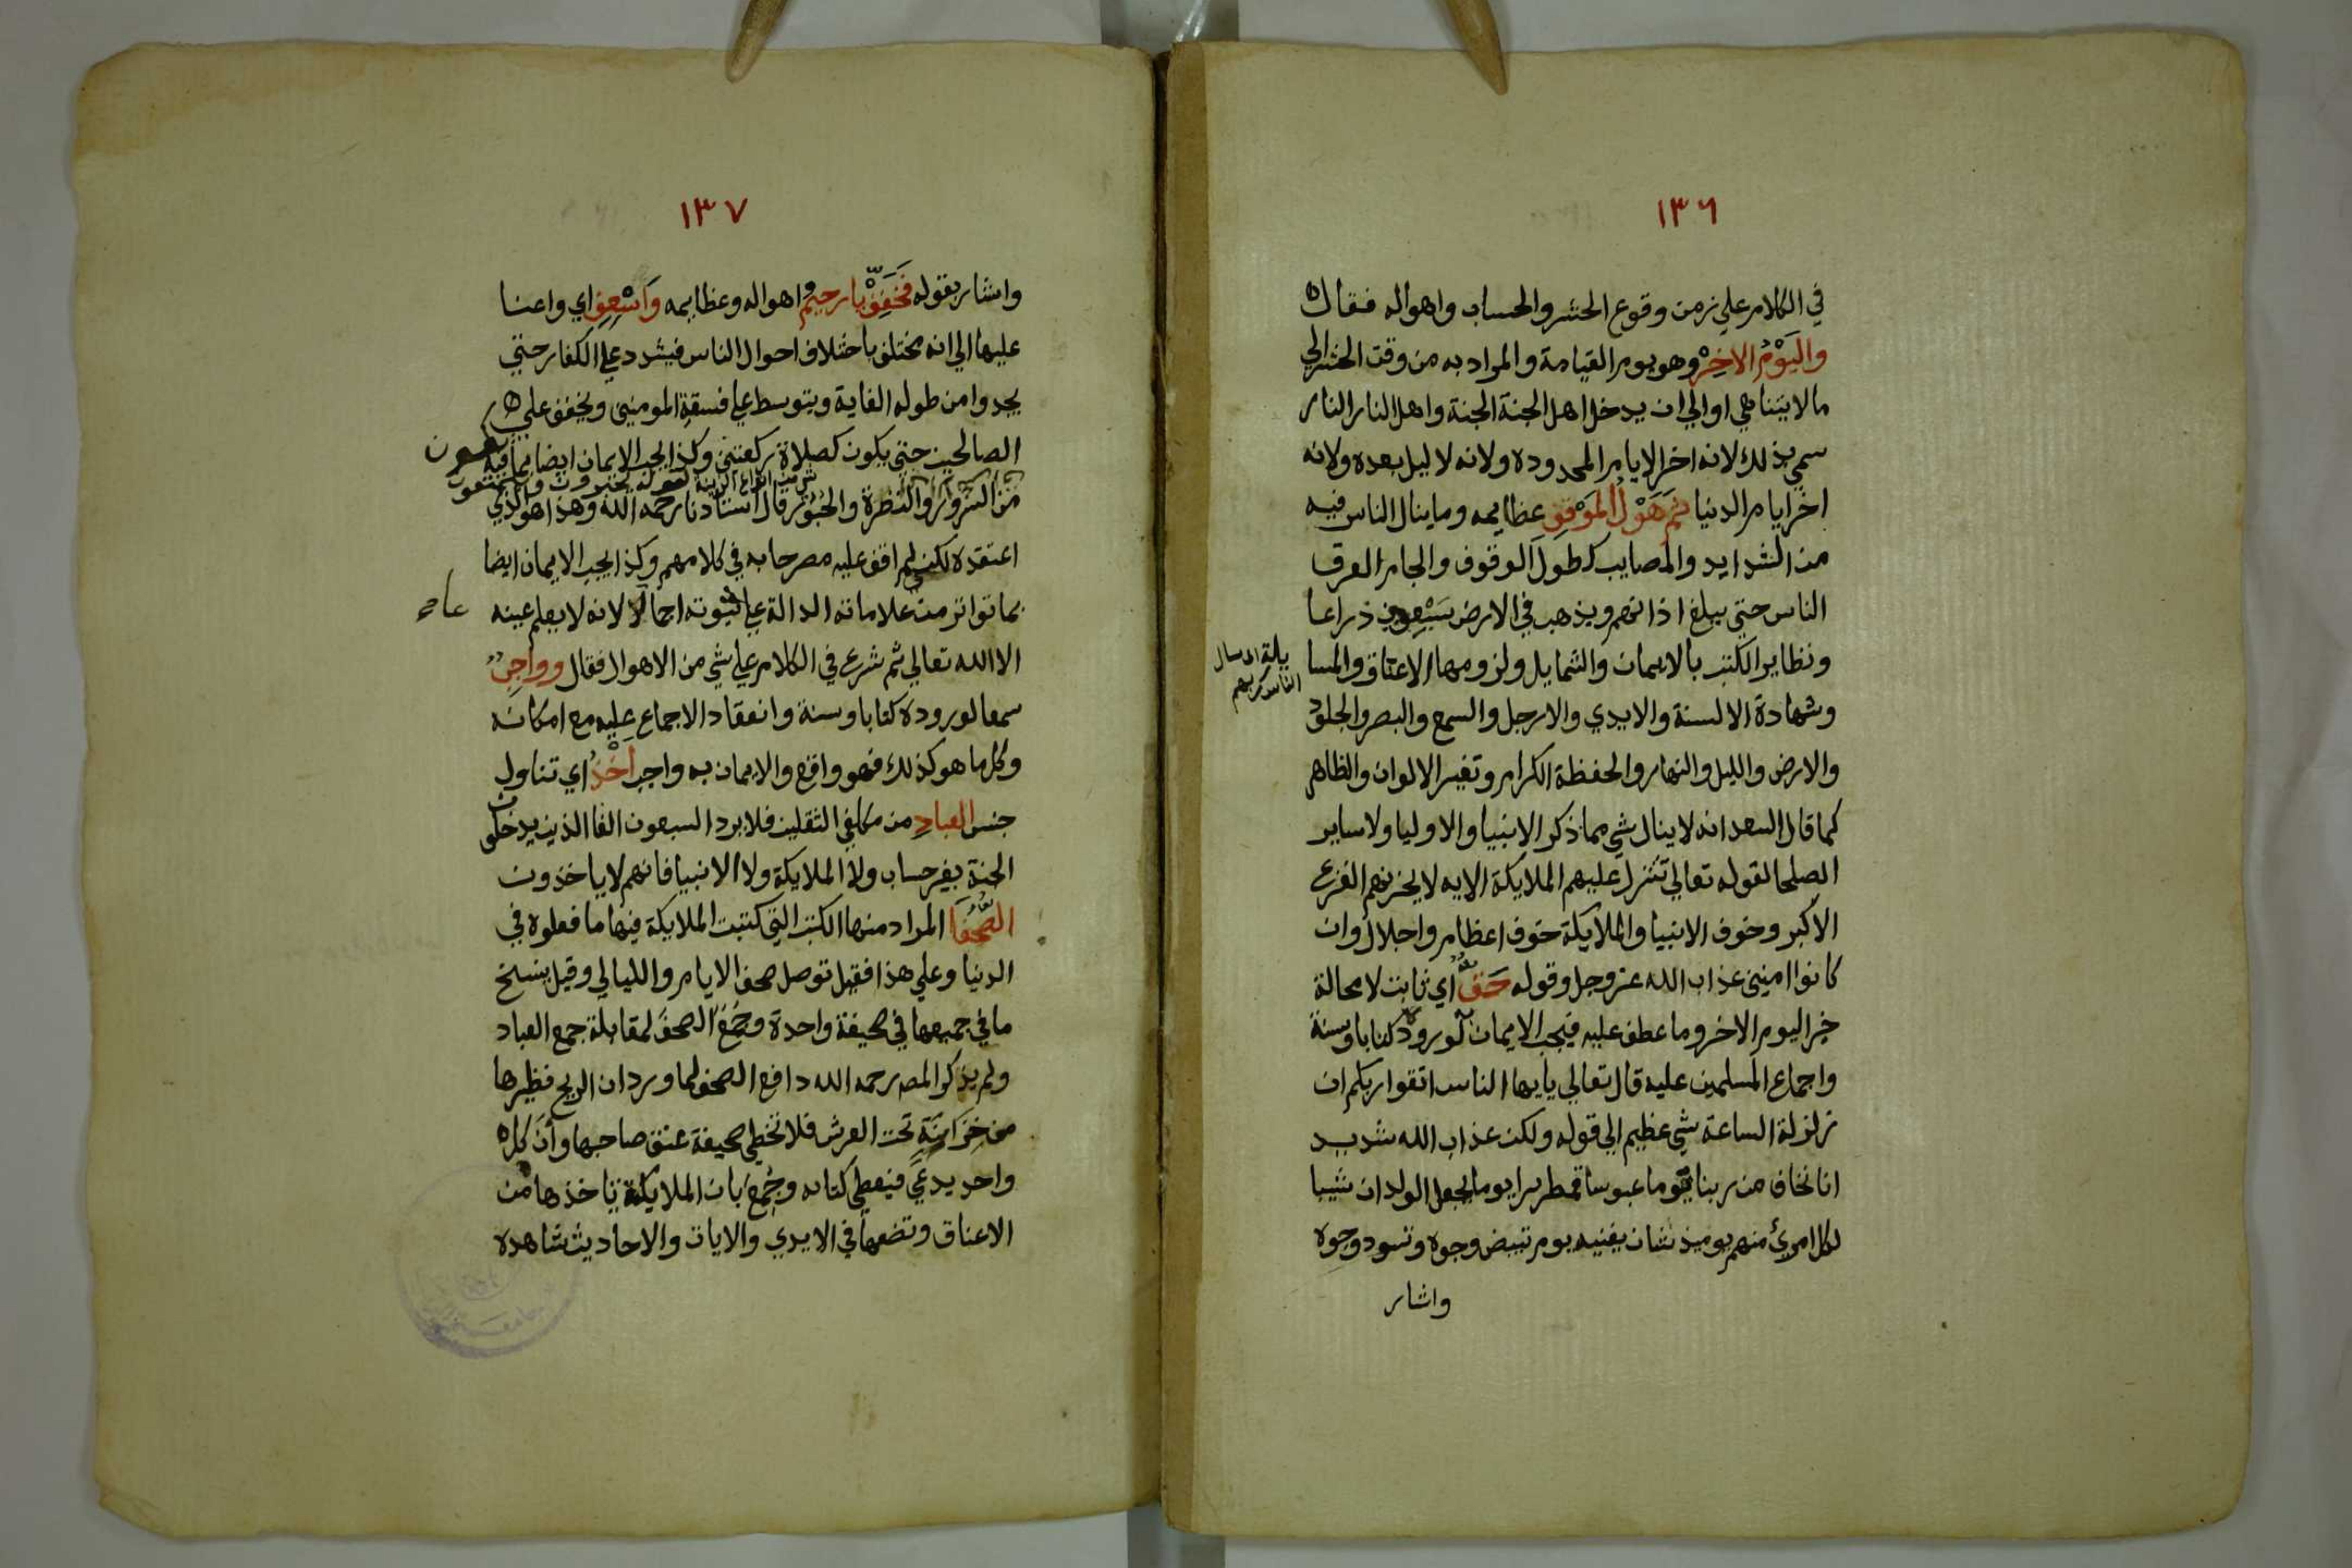 ١٣٦
في الكلام علي زمن وقوع الحشر والحساب واهواله فقال
واليَوْمُ الاخِرْ وهو يوم القيامة والمراد به من وقت الحشر الي
ما لا يتناهي او الي ان يدخل اهل الجنة الجنة واهل النار النار
سمي بذلك لانه اخر الايام المحدوده ولانه لا ليل بعده ولانه
اخر ايام الدنيا ثم هَوْلُ المَوْقِفِ عظايمه وما ينال الناس فيه
من الشدايد والمصايب كطول الوقوف والجام العرق
الناس حتي يبلغ اذانهم ويذهب في الارض سَبْعِون ذراعا
وتطاير الكتب بالايمان والشمايل ولزومها الاعناق والمسا
يلة
وشهادة الالسنة والايدي والارجل والسمع والبصر والجلود
والارض والليل والنهار والحفظة الكرام وتغير الالوان والظاهر
كما قال السعد انه لا ينال شي مما ذكر الانبيا والاوليا ولا ساير
الصلحا لقوله تعالي تتنزل عليهم الملايكة الايه لا يحزنهم الفزع
الاكبر وخوف الانبيا والملايكة خوف اعظام واجلال وان
كانوا امنين عذاب الله عز وجل وقوله حَقٌّ اي ثابت لا محالة
خبر اليوم الاخر وما عطف عليه فيجب الايمان لوروده كتابا وسنة
واجماع المسلمين عليه قال تعالي يايها الناس اتقوا ربكم ان
زلزلة الساعة شي عظيم الي قوله ولكن عذاب الله شديد
انا نخاف من ربنا يوما عبوسا قمطريرا يوما يجعل الولدان شيبا
لكل امرئ منهم يوميذ شان يغنيه يوم تبيض وجوه وتسود وجوه
واشار
١٣٧
واشار بقوله فَخَفِّفْ يا رحيمُ اهواله وعظايمه واسْعِفِ اي واعنا
عليها الي انه يختلف باختلاف احوال الناس فيشدد علي الكفار حتي
يجدوا من طوله الغاية ويتوسط علي فسقة المومنين ويخفف علي
الصالحين حتي يكون كصلاة ركعتين وكذا يجب الايمان ايضا بما فيه
من السرور والنضرة والحبور قال استاذنا رحمه الله وهذا هو الذي
اعتقده لكني لم اقف عليه مصرحا به في كلامهم وكذا يجب الايمان ايضا
بما تواتر من علاماته الدالة علي ثبوته اجمالا لانه لا يعلم عينه
الا الله تعالي ثم شرع في الكلام علي شي من الاهوال فقال وواجبٌ
سمعا لوروده كتابا وسنة وانعقاد الاجماع عليه مع امكانه
وكلما هو كذلك فهو واقع والايمان به واجب اَخْذُ اي تناول
جنس العبادِ من مكلفي الثقلين فلا يرد السبعون الفا الذين يدخلون
الجنة بغير حساب ولا الملايكة ولا الانبيا فانهم لا ياخذون
الصُّحُفَا المراد منها الكتب التي كتبت الملايكة فيها ما فعلوه في
الدنيا وعلي هذا فقيل توصل صحف الايام والليالي وقيل ينسخ
ما في جميعها في صحيفة واحدة وجُمِعَ الصحفَ لمقابلة جمع العباد
ولم يذكر المص رحمه الله دافع الصحف لما ورد ان الريح تطيرها
من خِزَانَةٍ تحت العرش فلا تخطي صحيفة عنق صاحبها وأنَّ كل
واحد يدعي فيعطي كتابه وجُمِعَ بان الملايكة تاخذها من
الاعناق وتضعها في الايدي والايات والاحاديث شاهده